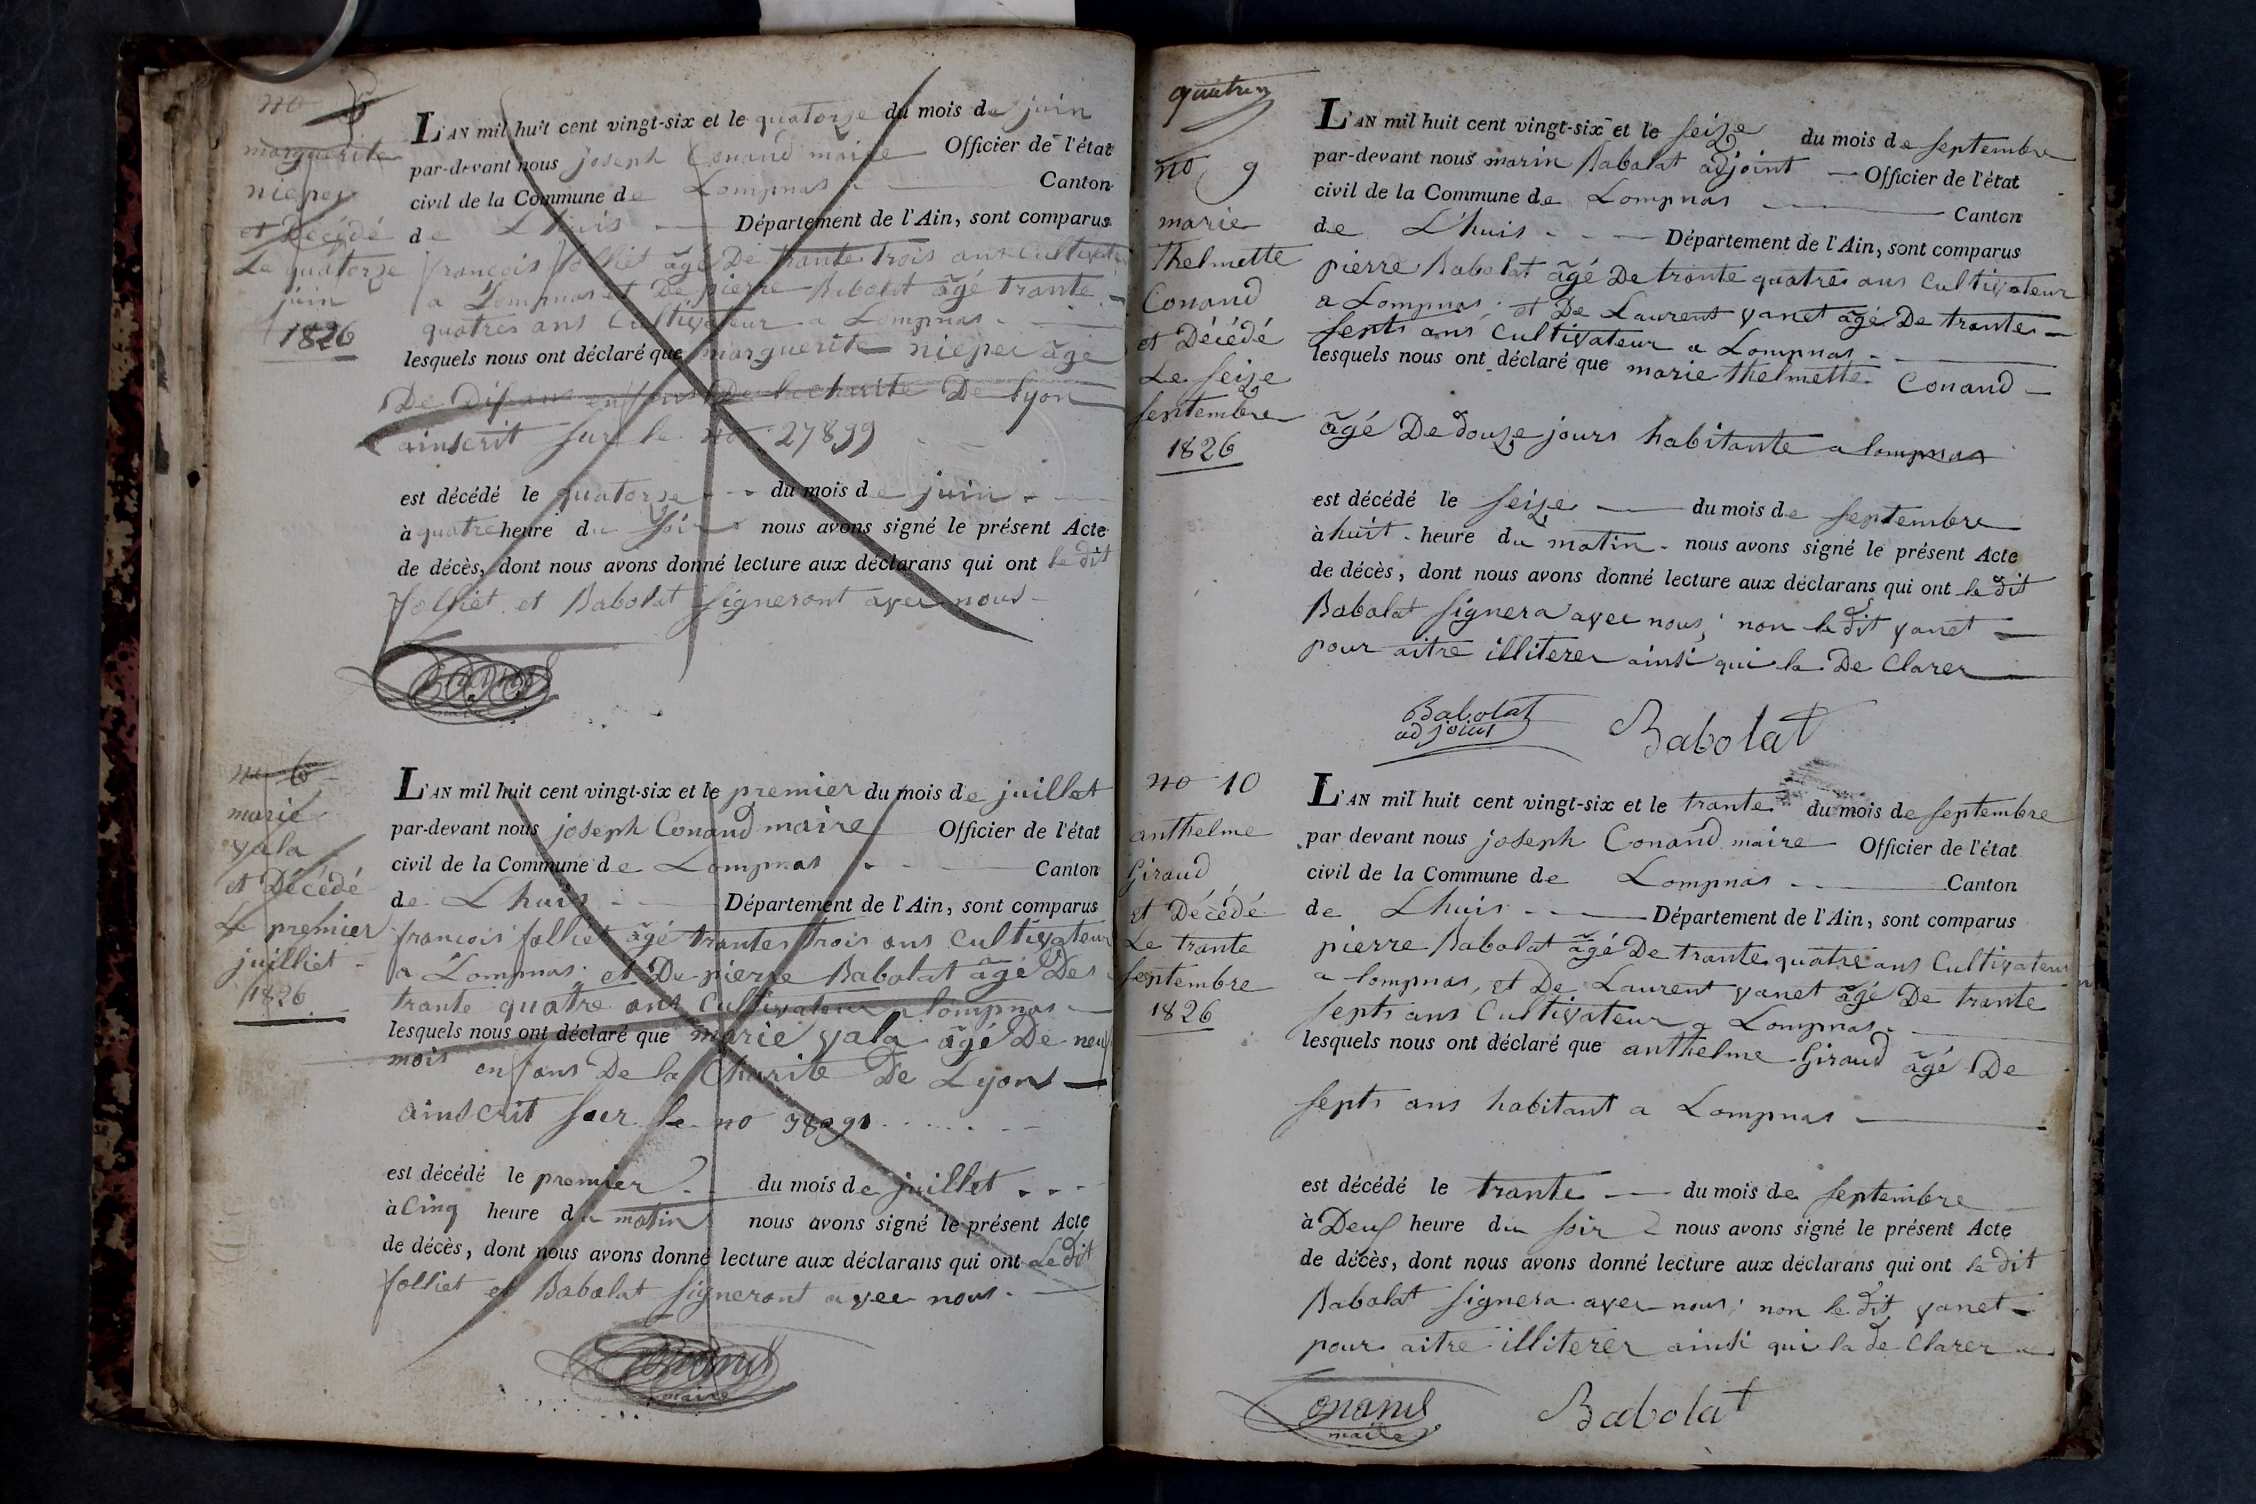 no 5
marguerite
niepce
et Décédé
Le quatorze
juin
1826
L'AN mil huit cent vingt-six et le quatorze du mois de juin
par-devant nous joseph Conand maire Officier de l'état
civil de la Commune de Lompnas Canton
de Lhuis Département de l'Ain, sont comparus
françois folliet âgé De trante trois ans Cultivateur
a Lompnas et De pierre Babolat âgé trante
quatres ans Cultivateur a Lompnas
lesquels nous ont déclaré que marguerite niepce âgé
De Dix ans enfans De la charite De Lyon
ainscrit sur le no 27899
est décédé le quatorze du mois de juin
à quatre heure du soir nous avons signé le présent Acte
de décès, dont nous avons donné lecture aux déclarans qui ont le dit
folliet et Babolat signeront avec nous
Conand
no 6
marie
vala
et Décédé
Le premier
juilliet
1826
L'AN mil huit cent vingt-six et le premier du mois de juillet
par-devant nous joseph Conand maire Officier de l'état
civil de la Commune de Lompnas Canton
de Lhuis Département de l'Ain, sont comparus
françois folliet âgé trantes trois ans Cultivateur
a Lompnas et De pierre Babolat âgé Des
trante quatre ans Cultivateur a lompnas
lesquels nous ont déclaré que marie vala âgé De neuf
mois enfans De la Charite De Lyons
ainscrit sur le no 38091
est décédé le premier du mois de juillet
à Cinq heure du matin nous avons signé le présent Acte
de décès, dont nous avons donné lecture aux déclarans qui ont Le dit
folliet et Babolat signeront avec nous
Conand
maire
no 9
marie
thelmette
Conand
et Décédé
Le seize
septembre
1826
L'AN mil huit cent vingt-six et le seize du mois de septembre
par-devant nous marin Babolat adjoint Officier de l'état
civil de la Commune de Lompnas Canton
de Lhuis Département de l'Ain, sont comparus
pierre Babolat âgé De trante quatres ans Cultivateur
a Lompnas et De Laurent vanet âgé De trante
septs ans Cultivateur a Lompnas
lesquels nous ont déclaré que marie thelmette Conand
âgé De douze jours habitante a lompnas
est décédé le seize du mois de septembre
à huit heure du matin nous avons signé le présent Acte
de décès, dont nous avons donné lecture aux déclarans qui ont le dit
Babolat signera avec nous; non le dit vanet
pour aitre illiterer ainsi qui la De Clarer
Babolat
adjoint
Babolat
no 10
anthelme
Giraud
et Décédé
Le trante
septembre
1826
L'AN mil huit cent vingt-six et le trante du mois de septembre
par devant nous joseph Conand maire Officier de l'état
civil de la Commune de Lompnas Canton
de Lhuis Département de l'Ain, sont comparus
pierre Babolat âgé De trante quatre ans Cultivateur
a lompnas, et De Laurent vanet âgé De trante
septs ans Cultivateur a Lompnas
lesquels nous ont déclaré que anthelme Giraud âgé De
septs ans habitant a Lompnas
est décédé le trante du mois de septembre
à Deux heure du soir nous avons signé le présent Acte
de décès, dont nous avons donné lecture aux déclarans qui ont le dit
Babolat signera avec nous; non le dit vanet
pour aitre illiterer ainsi qui la de Clarer
Conand
maire
Babolat